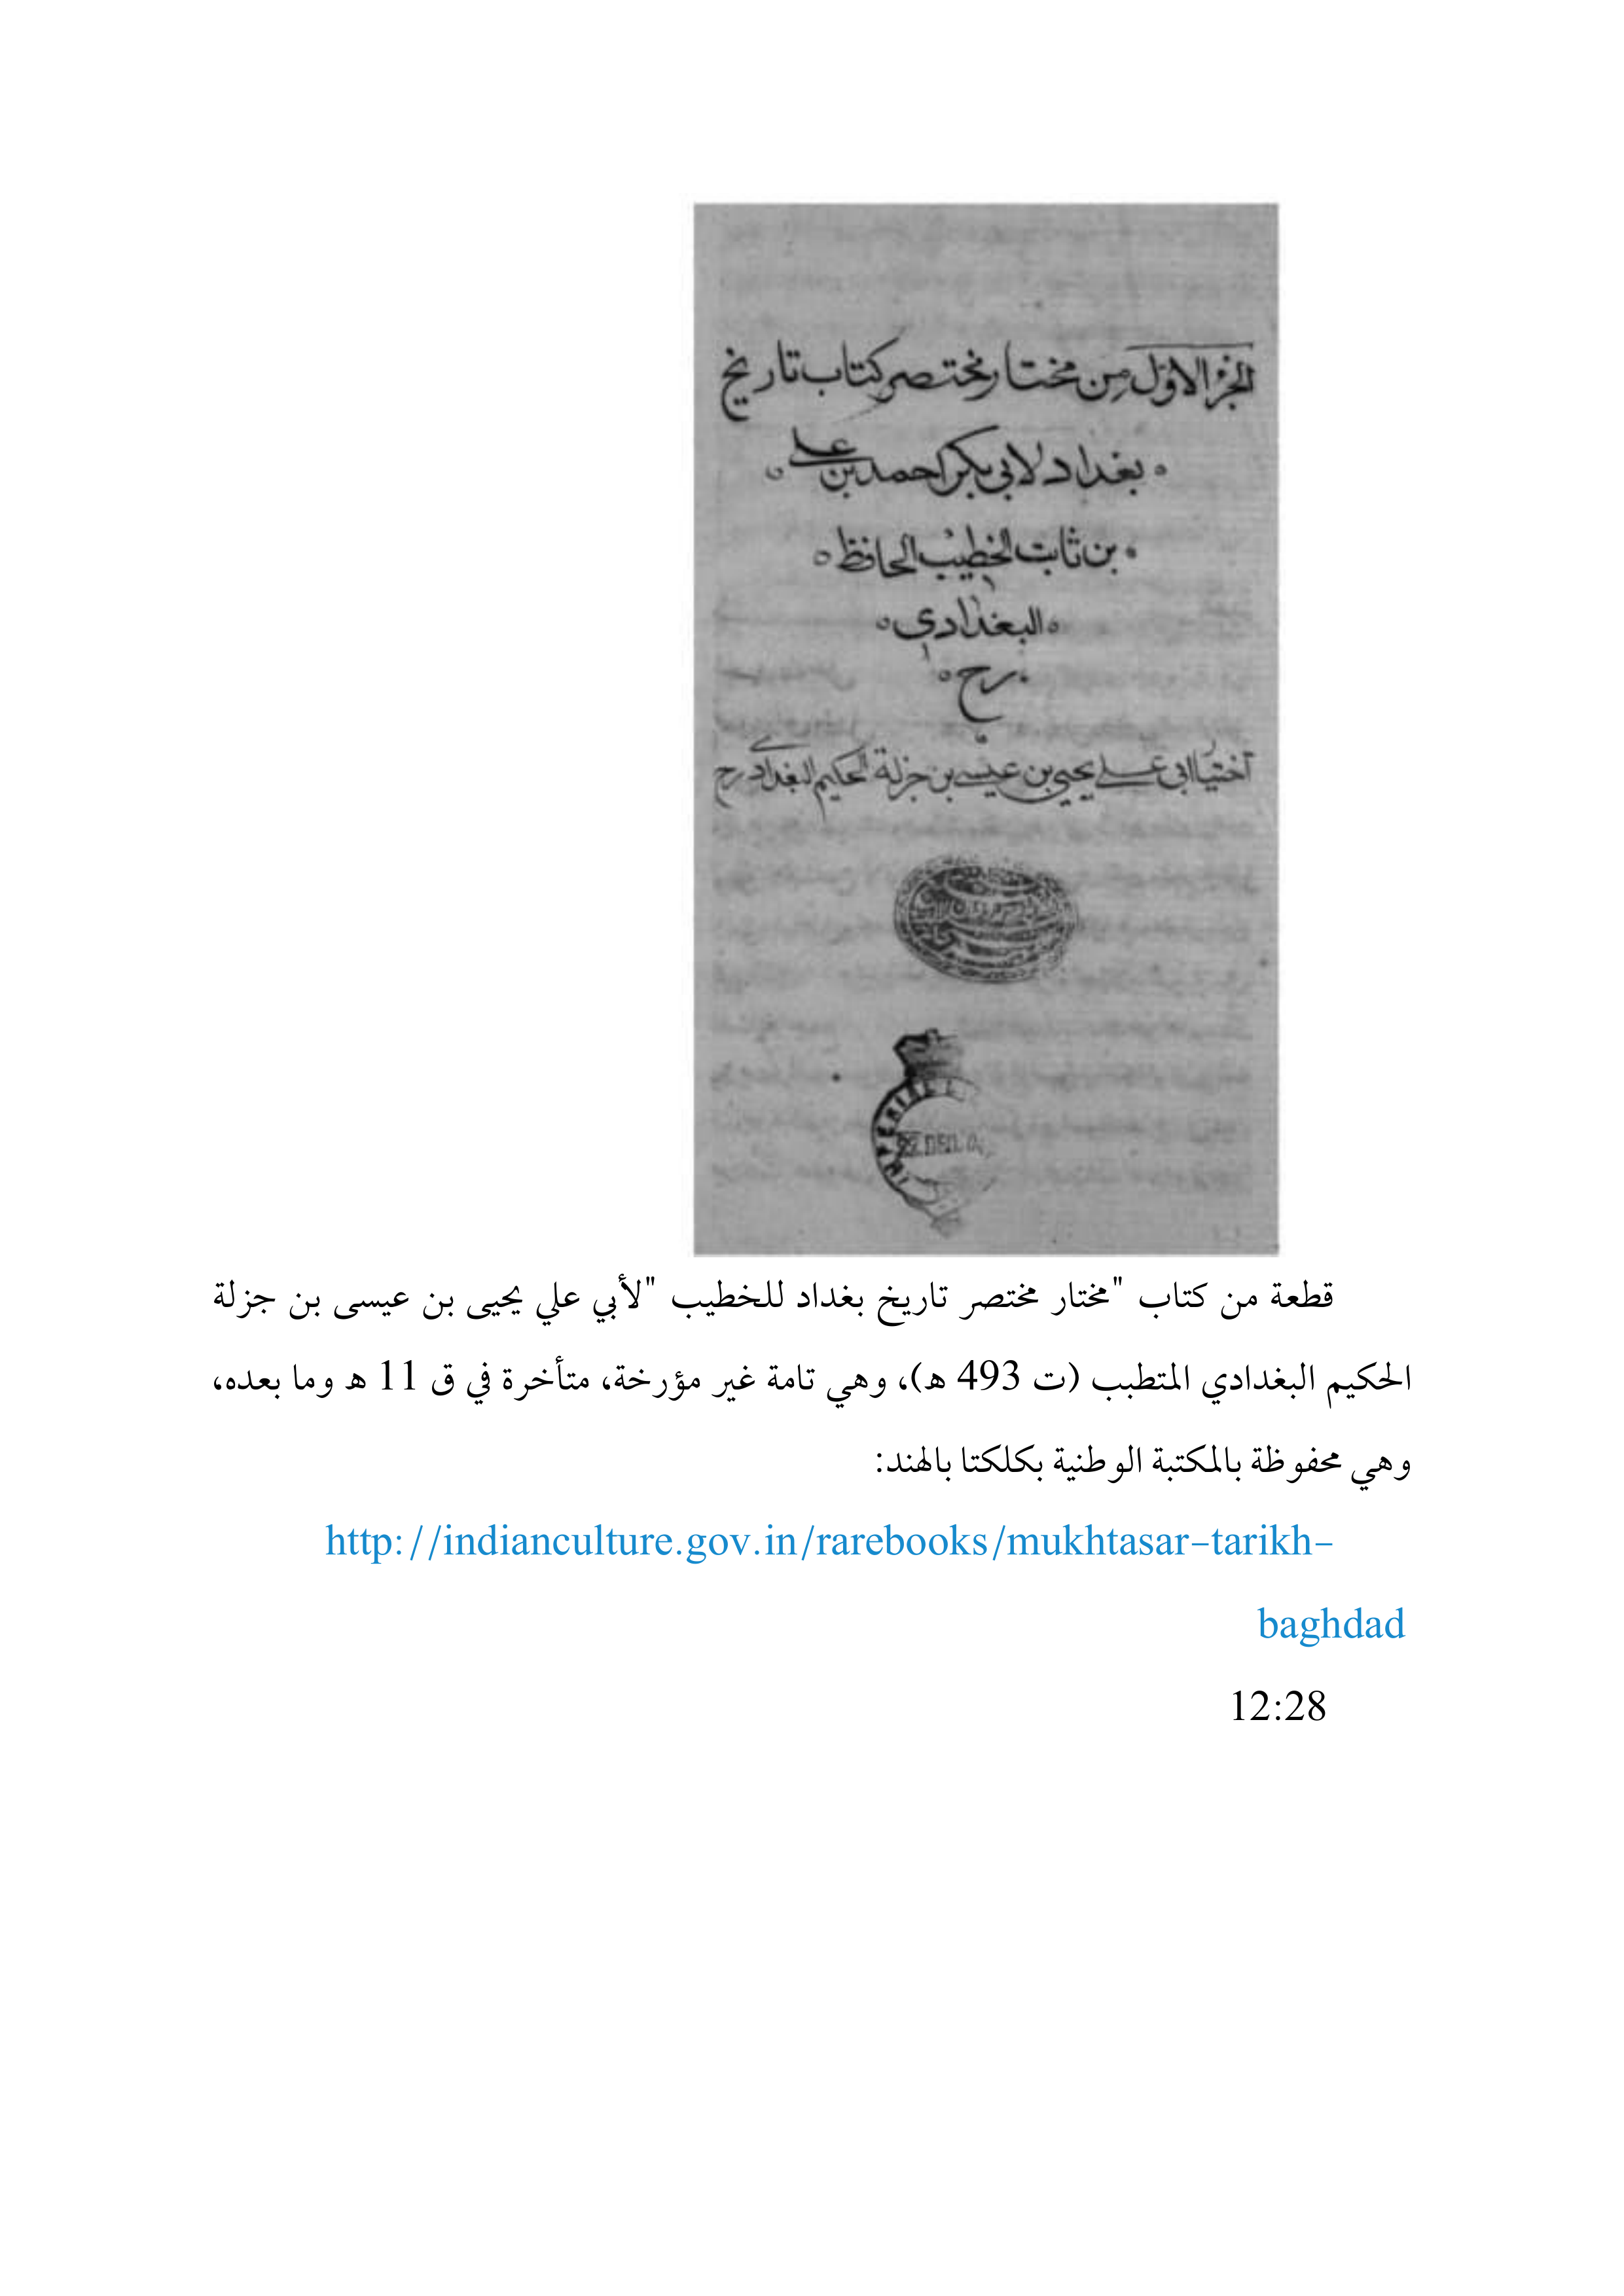 الجزء الاول من مختار مختصر كتاب تاريخ
بغداد لابي بكر احمد بن علي
بن ثابت الخطيب الحافظ
البغدادي
رح
اختيار ابي علي يحيى بن عيسى بن جزلة الحكيم البغدادي رح
IMPERIAL L
DEC.
قطعة من كتاب "مختار مختصر تاريخ بغداد للخطيب "لأبي علي يحيى بن عيسى بن جزلة
الحكيم البغدادي المتطبب (ت 493 ه)، وهي تامة غير مؤرخة، متأخرة في ق 11 ه وما بعده،
وهي محفوظة بالمكتبة الوطنية بكلكتا بالهند:
http://indianculture.gov.in/rarebooks/mukhtasar-tarikh-
baghdad
12:28